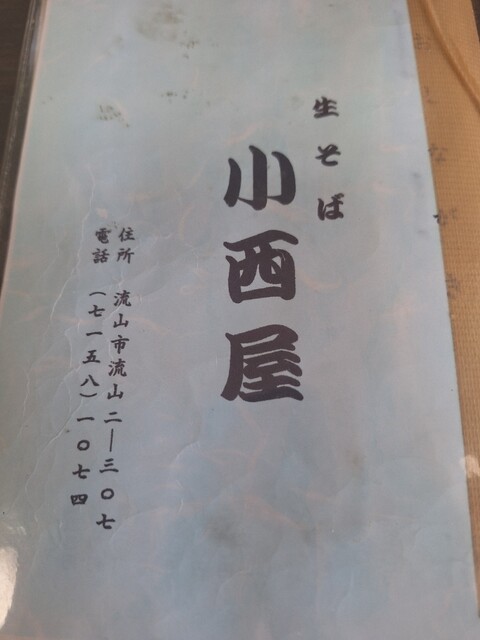 生そば
小西屋
住所 流山市流山二―三〇七
電話 (七一五八)一〇七四